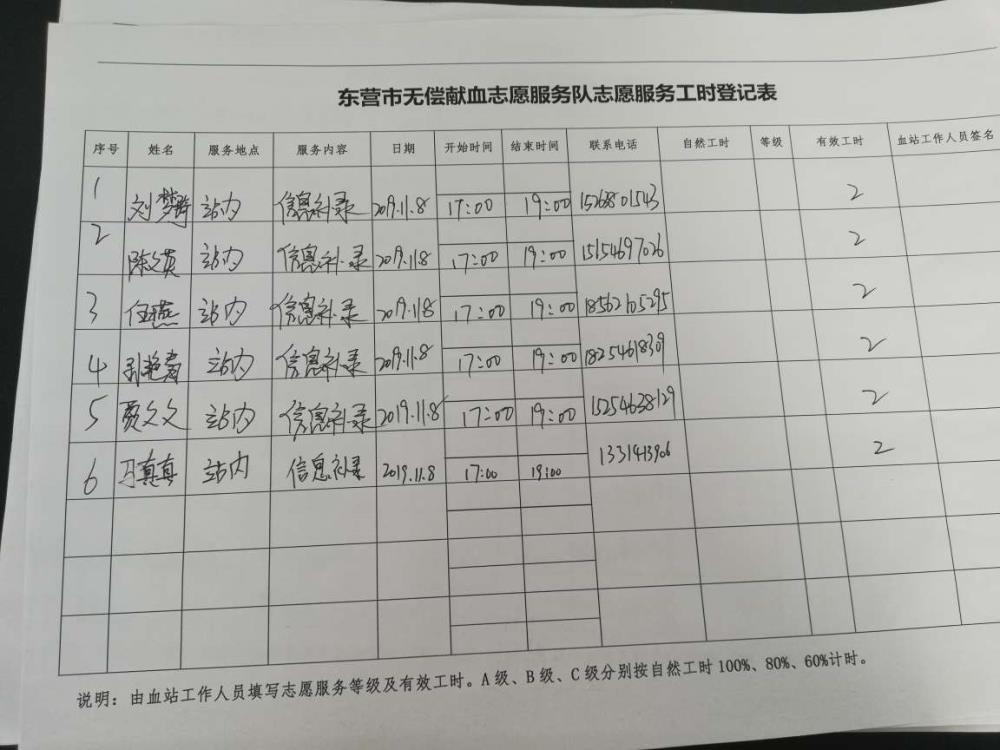 东营市无偿献血志愿服务队志愿服务工时登记表
序号 姓名 服务地点 服务内容 日期 开始时间 结束时间 联系电话 自然工时 等级 有效工时 血站工作人员签名
1 刘梦 站内 信息补录 2019.11.8 17:00 19:00 15268801543 2
2 陈文英 站内 信息补录 2019.11.8 17:00 19:00 15154697026 2
3 任燕 站内 信息补录 2019.11.8 17:00 19:00 18562105295 2
4 站内 信息补录 2019.11.8 17:00 19:00 18254618309 2
5 贾文文 站内 信息补录 2019.11.8 17:00 19:00 15254638129 2
6 马真真 站内 信息补录 2019.11.8 17:00 19:00 2
说明：由血站工作人员填写志愿服务等级及有效工时。A级、B级、C级分别按自然工时100%、80%、60%计时。